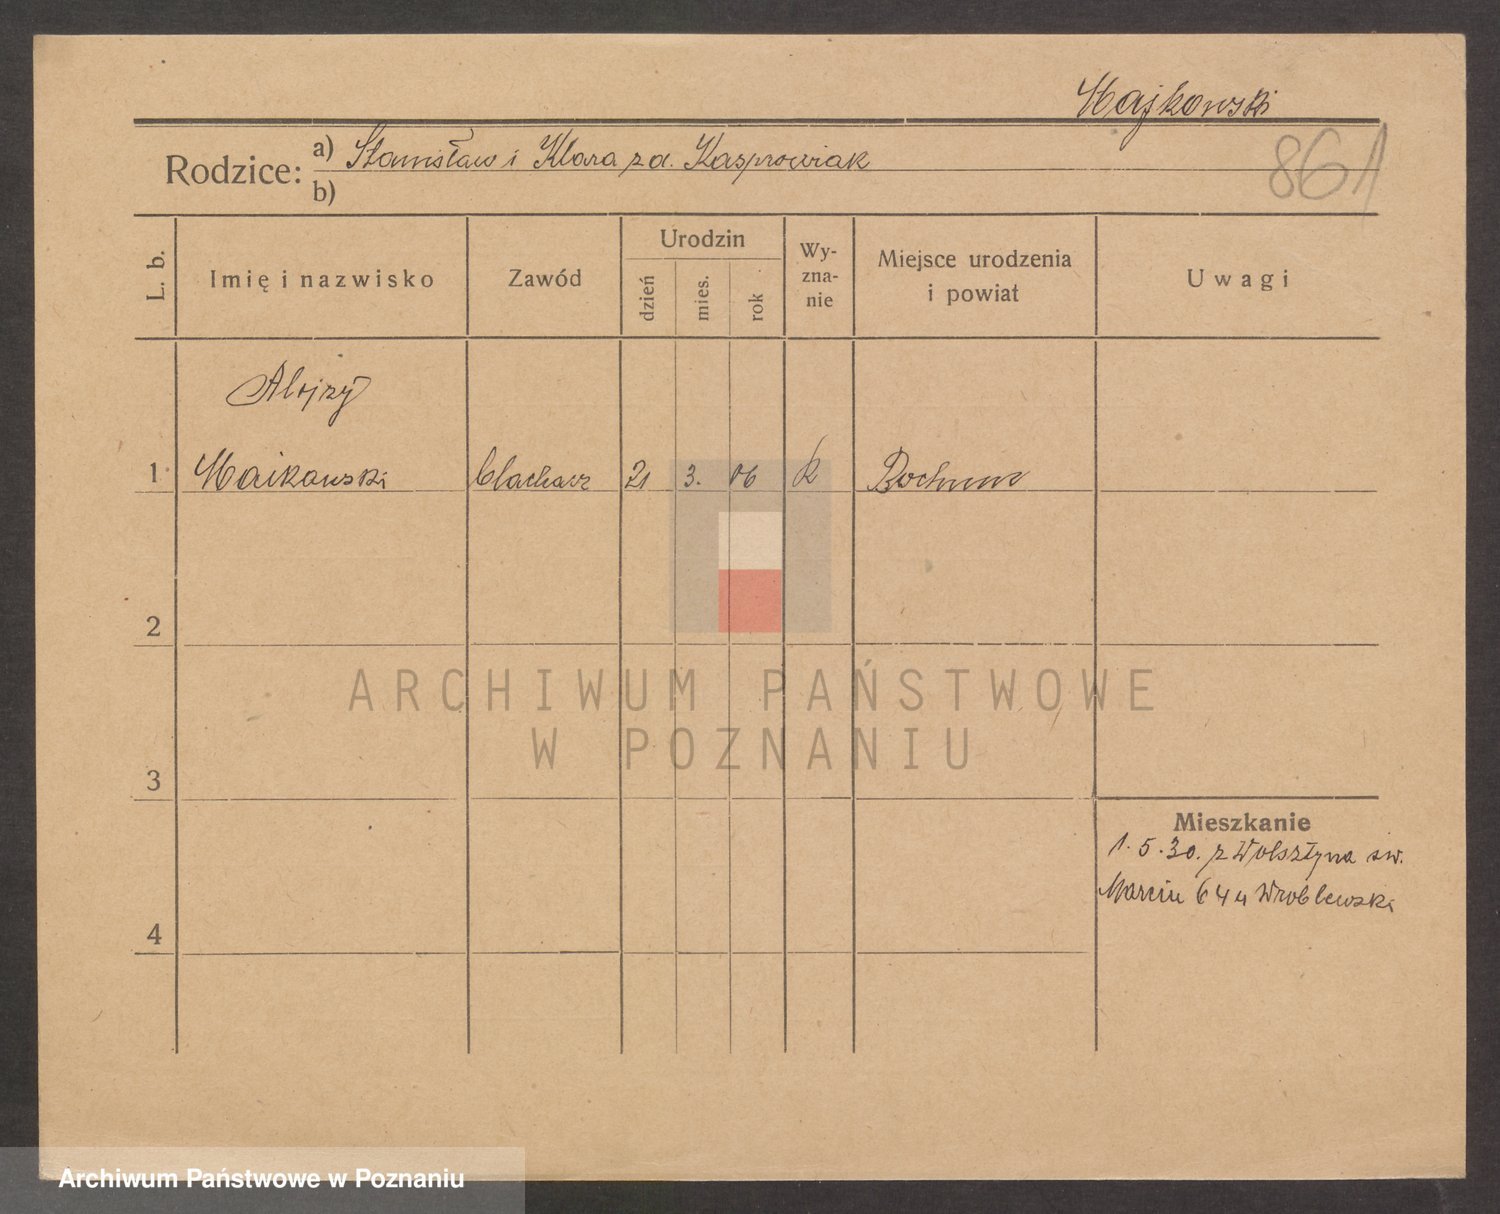 Majkowski
861
Rodzice:
a) Stanisław i Klara z d. Kasprowiak
b)
L. b.
Imię i nazwisko
Zawód
Urodzin
dzień
mies.
rok
Wy-
zna-
nie
Miejsce urodzenia
i powiat
Uwagi
Alojzy
1 Maikowski 21 3. 06 k Bochum
2
3
4
Mieszkanie
1.5.30. z Wolsztyna św.
Marcin 64 u Wroblewski
ARCHIWUM PAŃSTWOWE
W POZNANIU
Archiwum Państwowe w Poznaniu